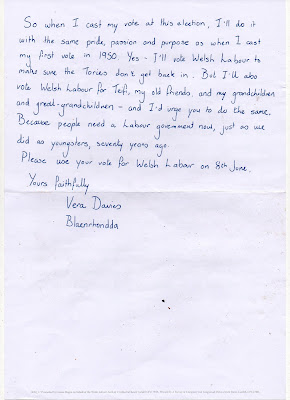 So when I cast my vote at this election, I'll do it
with the same pride, passion and purpose as when I cast
my first vote in 1950. Yes - I'll vote Welsh Labour to
make sure the Tories don't get back in. But I'll also
vote Welsh Labour for Tefi, my old friends, and my grandchildren
and great-grandchildren - and I'd urge you to do the same.
Because people need a Labour government now, just as we
did as youngsters, seventy years ago.
Please use your vote for Welsh Labour on 8th June.
Yours faithfully
Vera Davies
Blaenrhondda